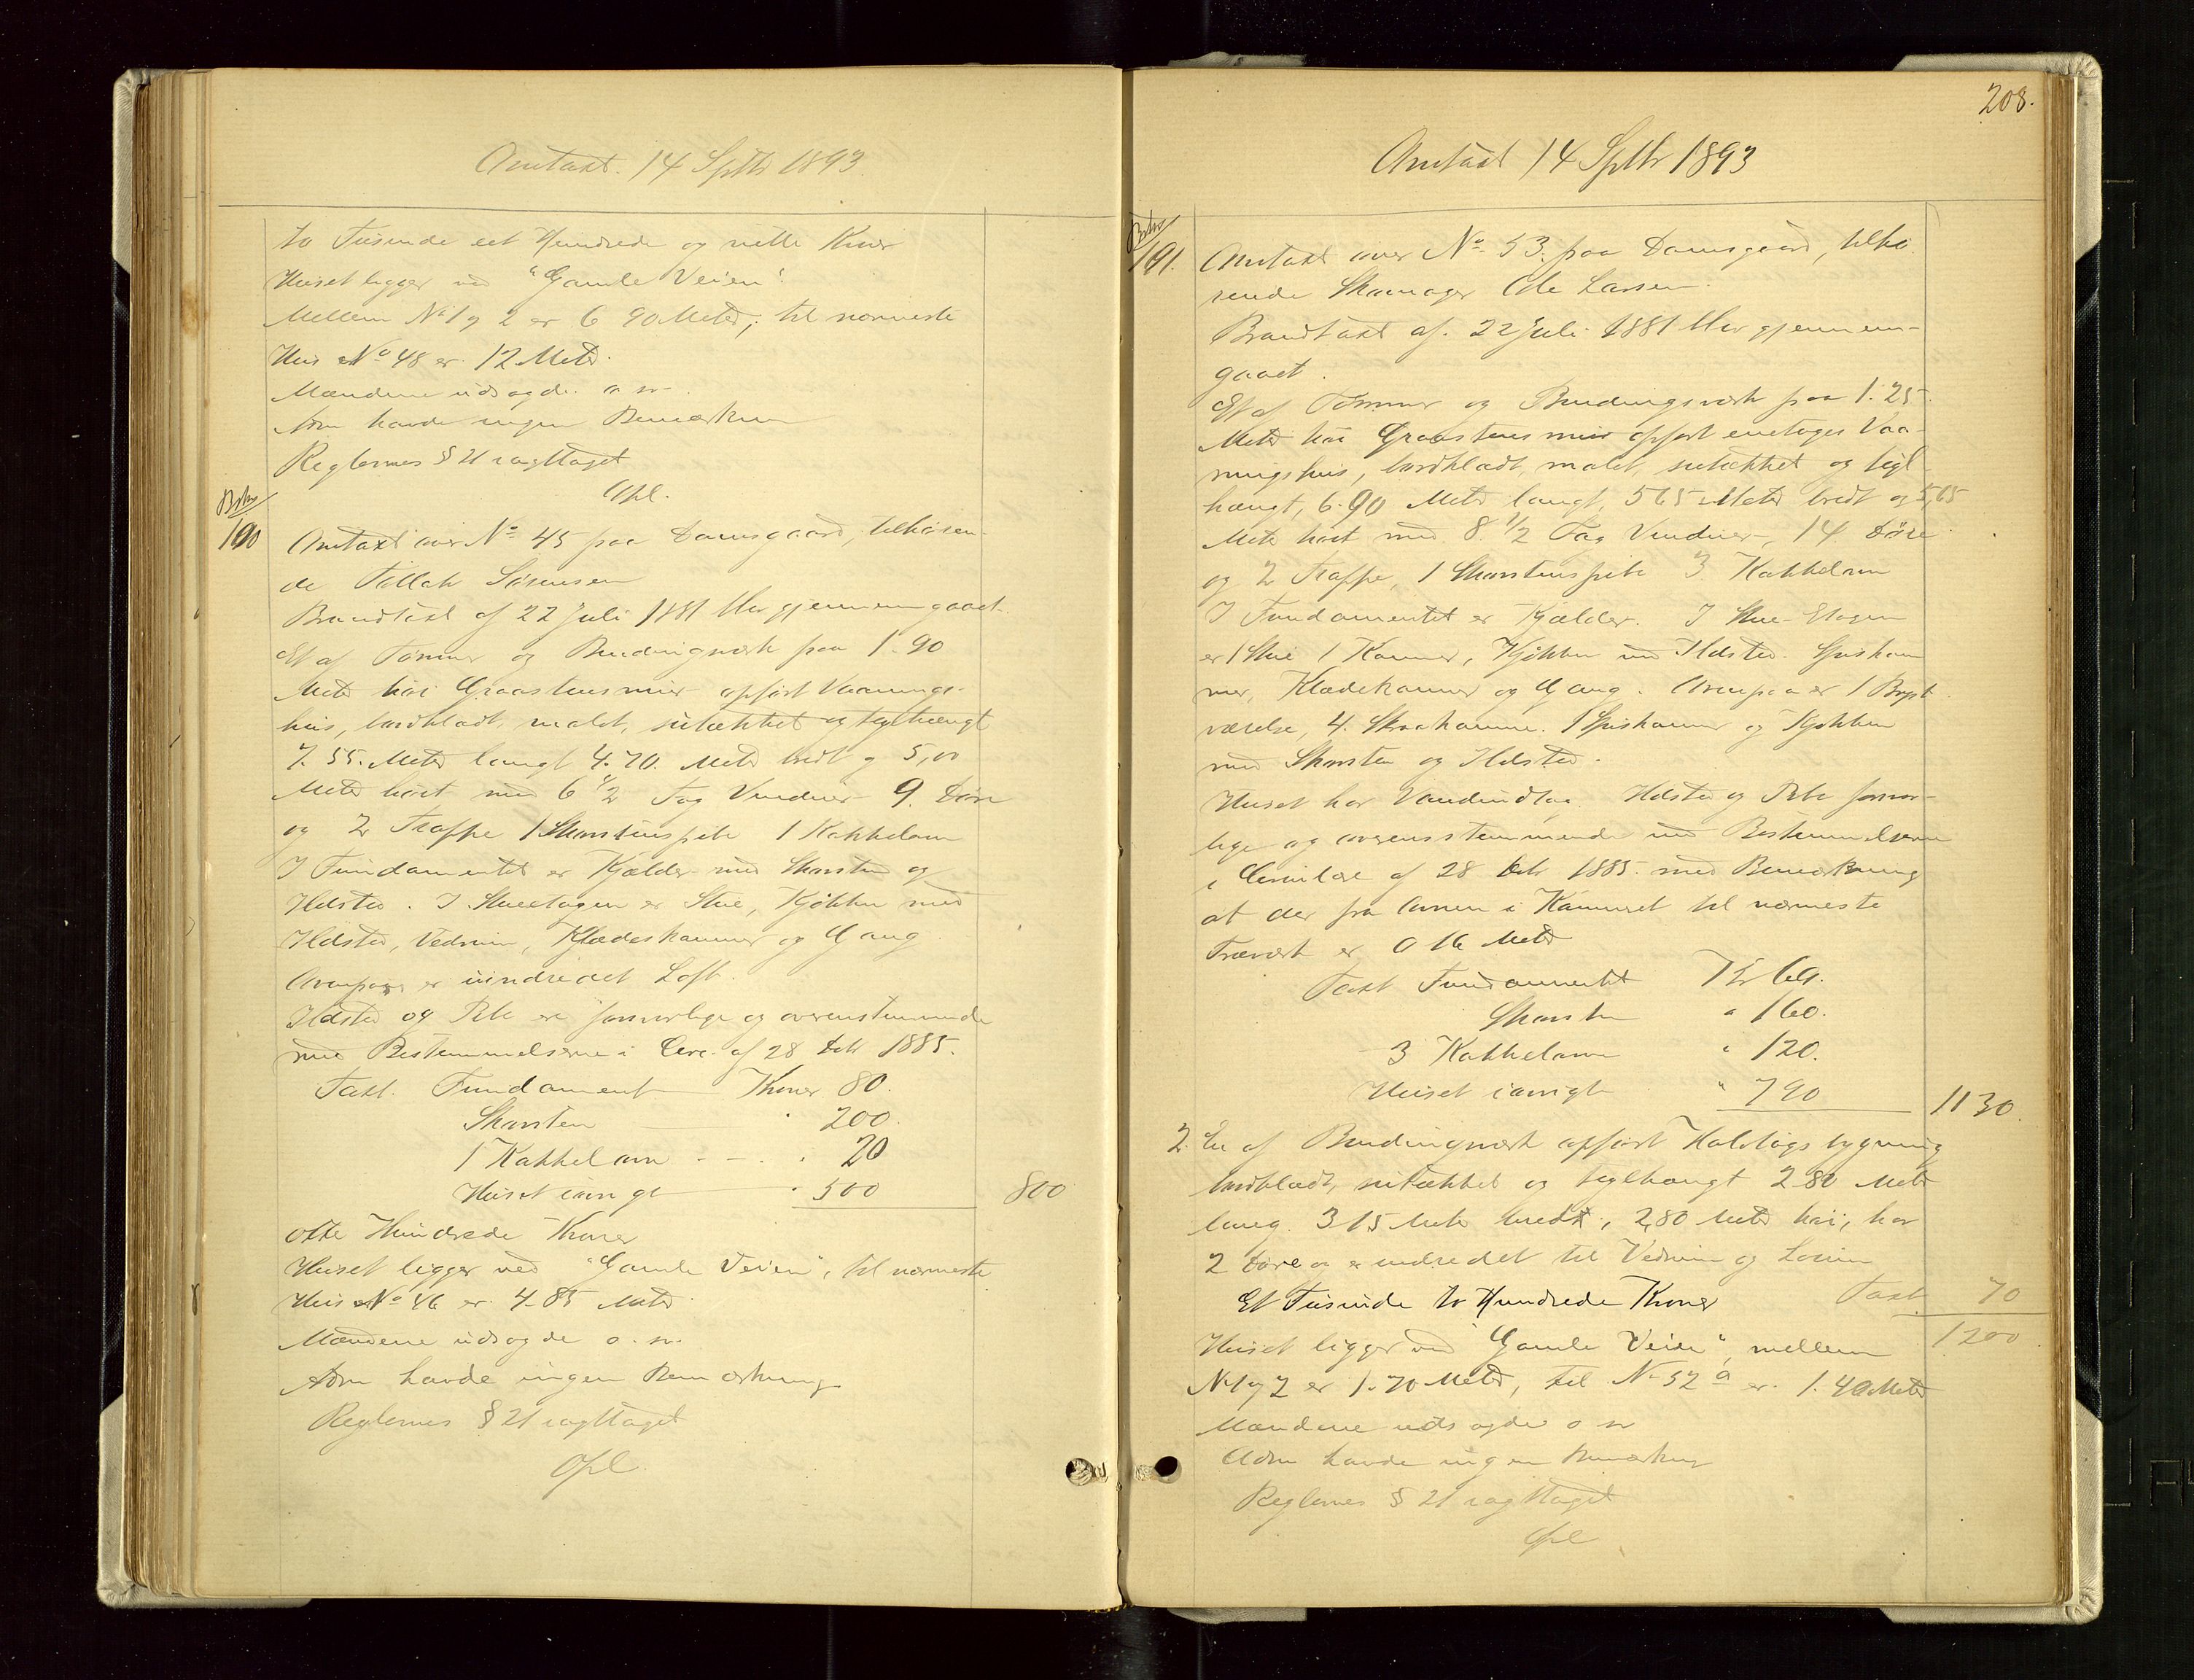 Omtaxt. 14 Septbr 1893.
to Tusinde eet Hundrede og nitti Kroner
Huset ligger ved "Gamle Veien".
Mellem No 1 og 2 er 6 90 Meter; til nærmeste
Hus No 48 er 12 Meter.
Mændene udsagde o. sv.
Adm havde ingen Bemærkn
Reglernes § 21 iagttaget
Opl.
190
Omtaxt over No 45 paa Damsgaard, tilhøren-
de Tollak Sørensen
Brandtaxt af 22 Juli 1881 blev gjennemgaaet.
Et af Tømmer og Bindingværk paa 1.90
Meter høi Graastensmur opført Vaanings-
hus, bordklædt, malet, sutækket og teglhængt
7.55. Meter langt 4.70. Meter bredt og 5,00
Meter høit med 6 1/2 Fag Vinduer 9. Døre
og 2 Trappe 1 Skorstenspibe 1 Kakkelovn
I Fundamentet er Kjælder med Skorsten og
Ildsted. I Stueetagen er Stue, Kjøkken med
Ildsted, Vedrum, Klædeskammer og Gang
Ovenpaa er uindredet Loft.
Ildsted og Pibe ere forsvarlige og overenstemmende
med Bestemmelserne i Circ. af 28 Dcbr 1885.
Taxt. Fundament Kroner 80.
Skorsten " 200.
1 Kakkelovn - - . " 20
Huset iøvrigt " 500 800
otte Hundrede Kroner
Huset ligger ved "Gamle Veien", til nærmeste
Hus No 46 er 4.85 Meter
Mændene udsagde o. sv.
Adm havde ingen Bemærkning
Reglernes § 21 iagttaget
Opl.
208.
Omtaxt 14 Septbr 1893
191.
Omtaxt over No 53. paa Damsgaard, tilhø
rende Skomager Ole Larsen.
Brandtaxt af 22 Juli 1881 blev gjennem-
gaaet.
Et af Tømmer og Bindingsværk paa 1.25
Meter høi Graastensmur opført enetages Vaa-
ningshus, bordklædt, malet, sutækket og tegl-
hængt, 6.90 Meter langt, 5 65 Meter bredt og 5,65
Meter høit med 8. 1/2 Fag Vinduer, 14 Døre
og 2 Trappe, 1 Skorstenspibe 3 Kakkelovn
I Fundamentet er Kjælder. I Stue-Etagen
er 1 Stue 1 Kammer, Kjøkken med Ildsted. Spiskam
mer, Klædekammer og Gang. Ovenpaa er 1 Bryst
værelse, 4. Skraakammer. 1 Spiskammer og Kjøkken
med Skorsten og Ildsted.
Huset har Vandindlæg. Ildsted og Pibe forsvar-
lige og overensstemmende med Bestemmelserne
i Circulære af 28 Dcbr 1885 med Bemærkning
at der fra Ovnen i Kammeret til nærmeste
Træværk er 0 16 Meter
Taxt Fundamentet Kr 60.
Skorsten " 160.
3 Kakkelovn " 120.
Huset iøvrigt " 790 1130.
2. En af Bindingværk opført Halvtagsbygning
bordklædt, sutækket og teglhængt 2.80 Meter
lang. 3 15 Meter bred, 2,80 Meter høi, har
2 Døre og er indredet til Vedrum og Locum
Taxt 70
Et Tusinde to Hundrede Kroner
1200
Huset ligger ved "Gamle Veien", mellem
No 1 og 2 er 1.70 Meter, til No 52 a er 1.40 Meter
Mændene udsagde o sv
Adm havde ingen Bemærkn
Reglernes § 21 iagttaget
Opl